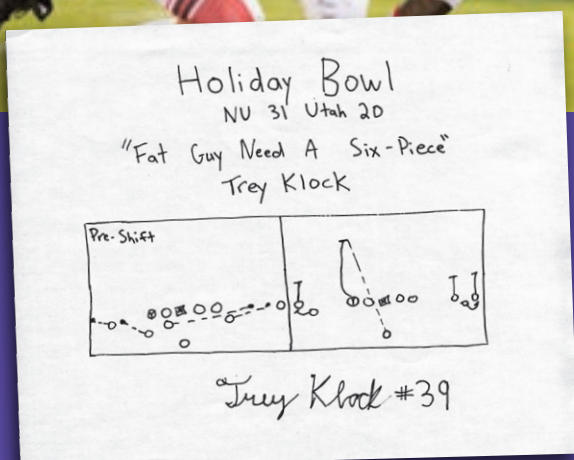 Holiday Bowl
NU 31 Utah 20
"Fat Guy Need A Six-Piece"
Trey Klock
Pre-Shift
Trey Klock #39